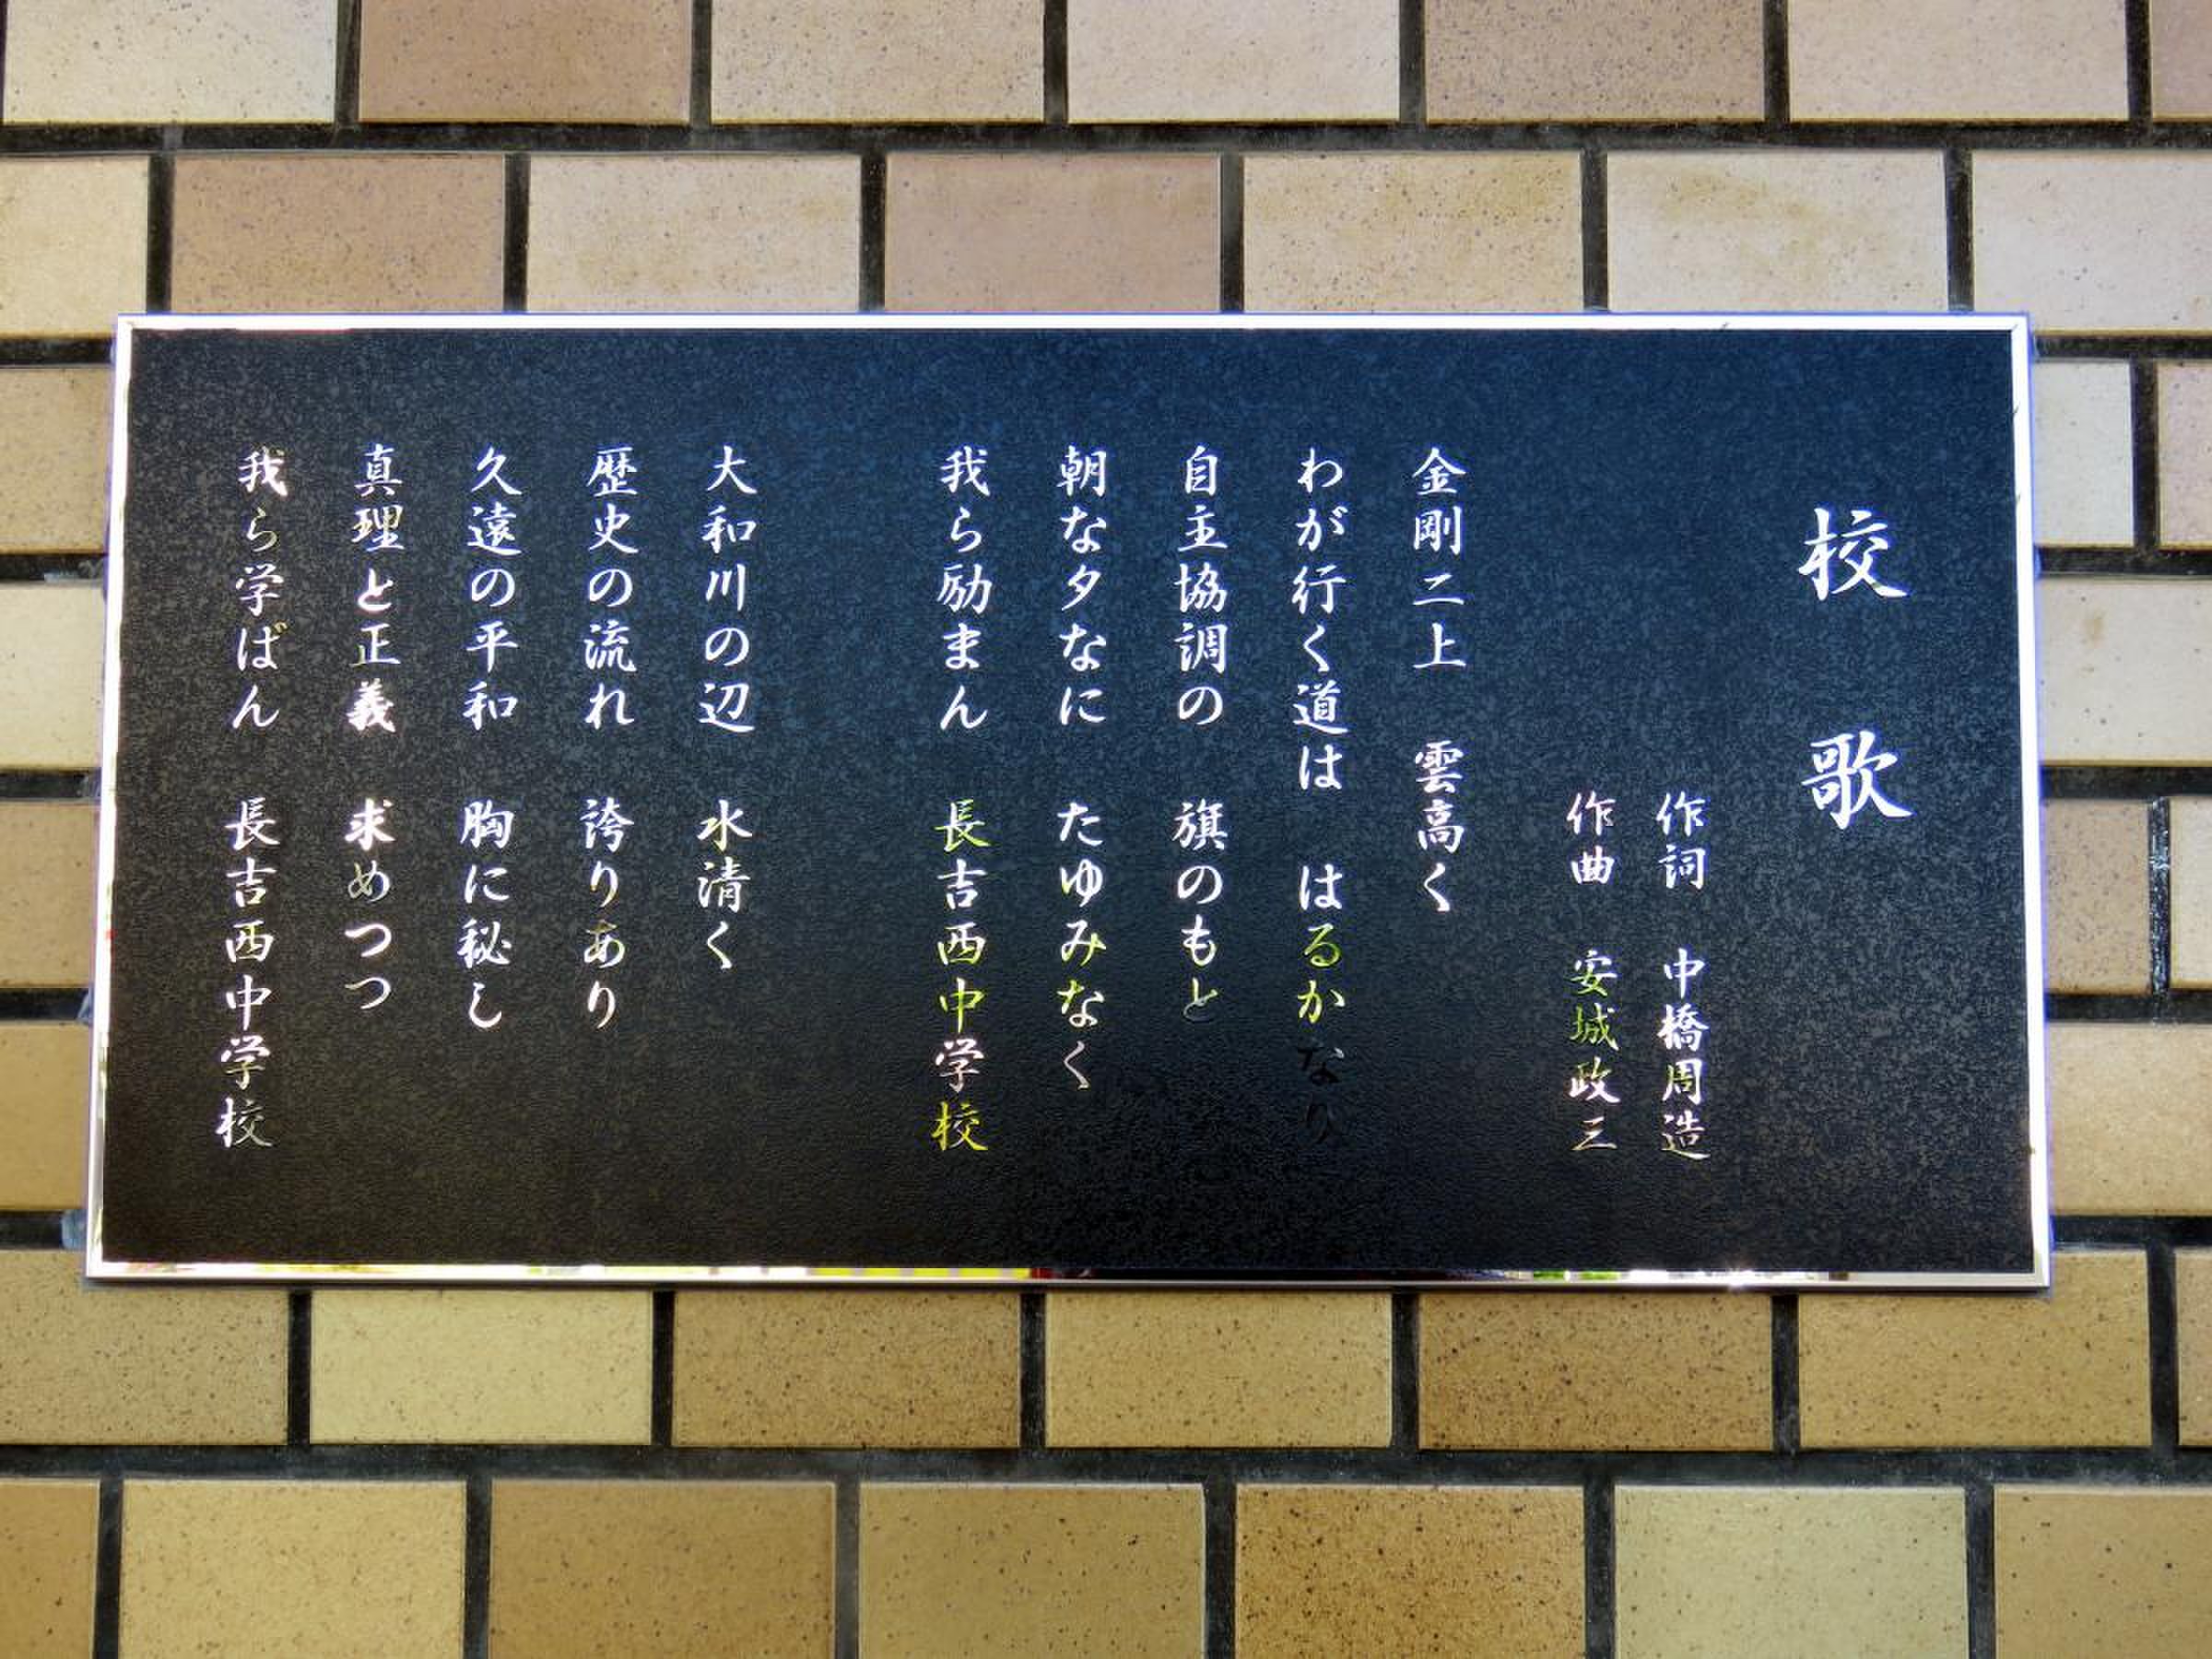 校歌
作詞 中橋周造
作曲 安城政三
金剛二上 雲高く
わが行く道は はるかなり
自主協調の 旗のもと
朝な夕なに たゆみなく
我ら励まん 長吉西中学校
大和川の辺 水清く
歴史の流れ 誇りあり
久遠の平和 胸に秘し
真理と正義 求めつつ
我ら学ばん 長吉西中学校